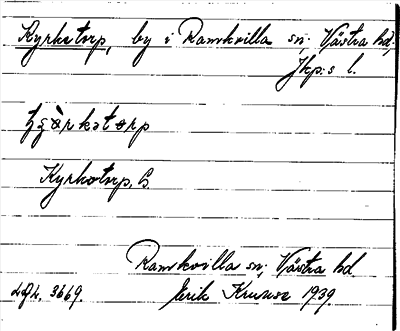 Kyrketorp, by i Ramkvilla sn; Västra hd,
Jkp:s l.
Kyrkotorp, B
Ramkvilla sn; Västra hd.
Erik Kruuse 1939.
3669.